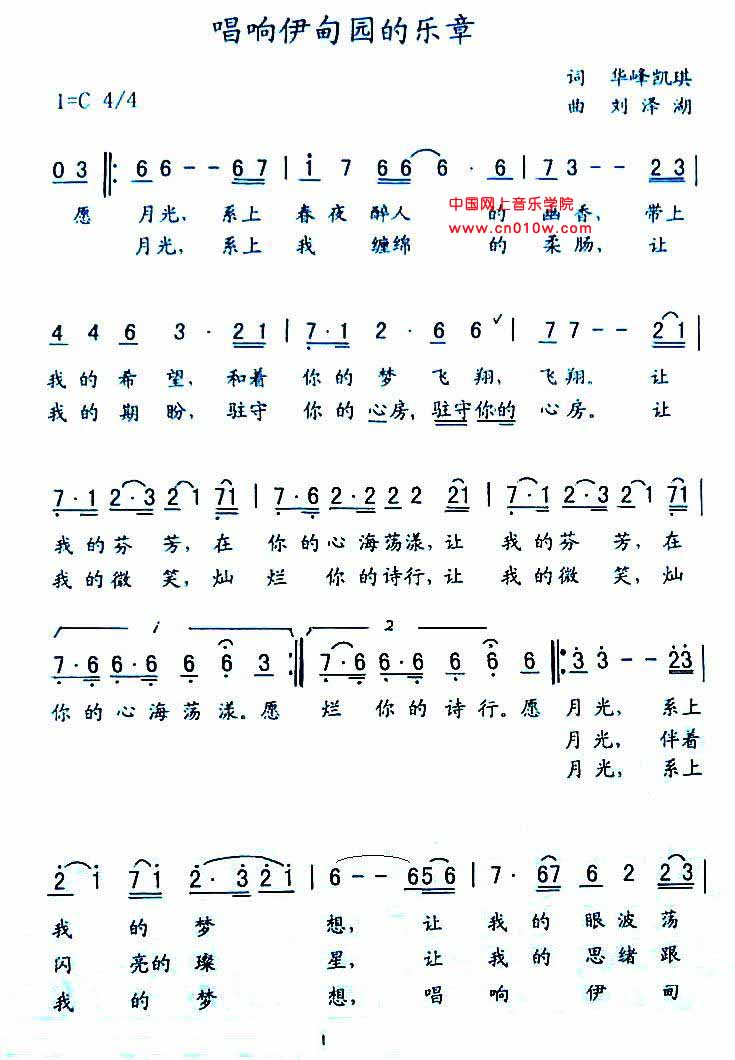 唱响伊甸园的乐章
词 华峰凯琪
1=C 4/4
曲 刘泽湖
0 3 ‖: 6 6 - - 6 7 | i 7 6 6 6 · 6 | 7 3 - - 2 3 |
中国网上音乐学院
www.cn010w.com
愿 月光, 系上 春夜醉人 的幽香, 带上
月光, 系上我 缠绵 的柔肠, 让
4 4 6 3 · 2 1 | 7 · 1 2 · 6 6 ✓ | 7 7 - - 2 1 |
我的希望, 和着 你的梦 飞翔, 飞翔。 让
我的期盼, 驻守 你的心房, 驻守你的 心房。 让
7 · 1 2 · 3 2 1 7 1 | 7 · 6 2 · 2 2 2 2 1 | 7 · 1 2 · 3 2 1 7 1 |
我的芬 芳, 在 你的心海荡漾, 让 我的芬 芳, 在
我的微 笑, 灿 烂 你的诗行, 让 我的微 笑, 灿
1 2
7 · 6 6 · 6 6 6 3 :‖ 7 · 6 6 · 6 6 6 6 ‖: 3 3 - - 2 3 |
你的心海荡 漾。愿 烂 你的诗 行。愿 月光, 系上
月光, 伴着
月光, 系上
2 i 7 1 2 · 3 2 i | 6 - - 6 5 6 | 7 · 6 7 6 2 2 3 |
我 的 梦 想, 让 我的眼波荡
闪 亮的璨 星, 让 我的思绪跟
我 的 梦 想, 唱 响 伊 甸
1